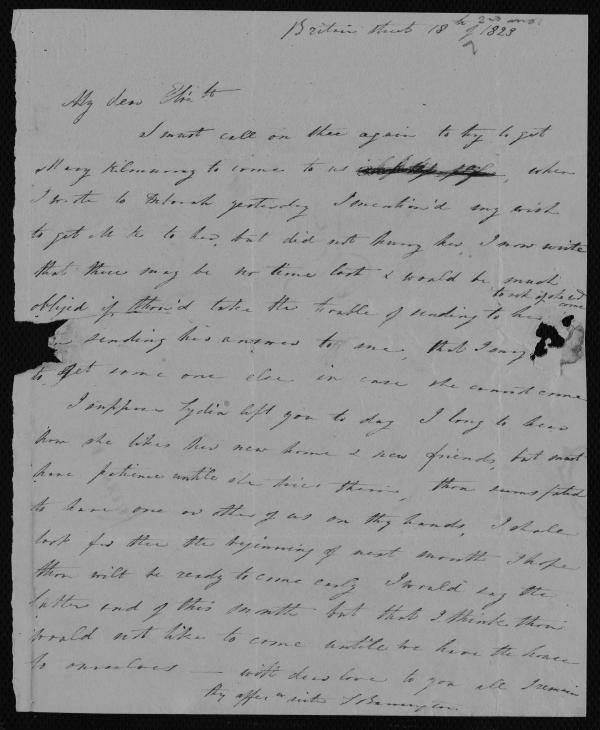 Britain Street 18th 2nd mo: of 1823
My dear Eliz.th
I must call on thee again to try to get
Mary Kilmurray to come to us, when
I wrote to yesterday I mention'd my wish
to get M K to her, but did not hurry her, I now write
that there may be no time lost & would be much
oblijed if thou'd take the trouble of sending to her
to ask if she could come
sending his answer to me, that I may
to get some one else in case she cannot come
I suppose Lydia left you to day I long to hear
how she likes her new home & new friends, but must
have patience untill she tries them, thou seems fated
to have one or other of us on thy hands, I shall
look for thee the beginning of next month I hope
thou wilt be ready to come early I would say the
latter end of this month but that I think thou
would not like to come untill we have the house
to ourselves — with dear love to you all I remain
thy affec sister S Barrington